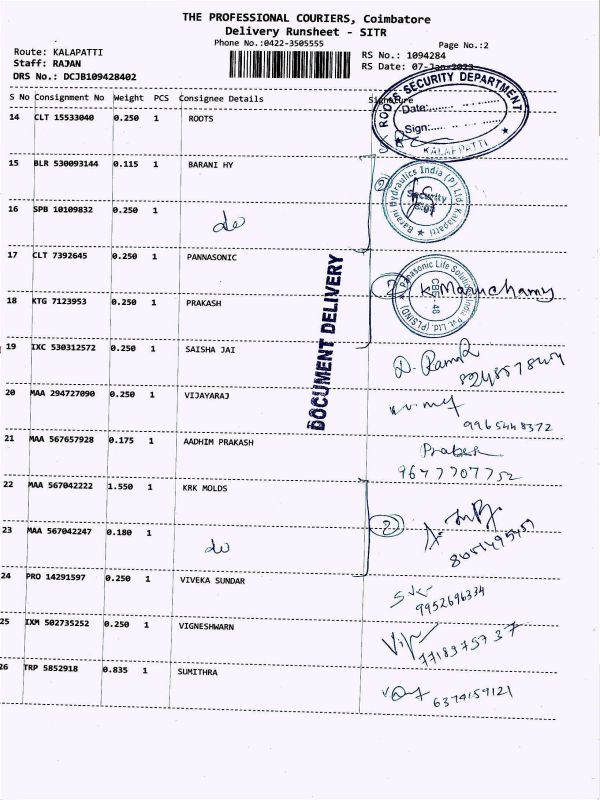 THE PROFESSIONAL COURIERS, Coimbatore
Delivery Runsheet - SITR
Phone No.:0422-3505555
Page No.:2
Route: KALAPATTI
Staff: RAJAN
DRS No.: DCJB109428402
RS No.: 1094284
RS Date: 07-Jan-2023
S No Consignment No Weight PCS Consignee Details Signature
ROOTS SECURITY DEPARTMENT
Date:
Sign:
KALAPATTI
14 CLT 15533040 0.250 1 ROOTS
15 BLR 530093144 0.115 1 BARANI HY
2
Barani Hydraulics India (P) Ltd. Kalapatti
Security
16 SPB 10109832 0.250 1 do
17 CLT 7392645 0.250 1 PANNASONIC
Panasonic Life Solutions India Pvt. Ltd.
CBE - 48
2 K. Maruchamy
18 KTG 7123953 0.250 1 PRAKASH
DOCUMENT DELIVERY
19 IXC 530312572 0.250 1 SAISHA JAI
20 MAA 294727090 0.250 1 VIJAYARAJ
9965448372
21 MAA 567657928 0.175 1 AADHIM PRAKASH
9677707752
22 MAA 567042222 1.550 1 KRK MOLDS
2
23 MAA 567042247 0.180 1 do
24 PRO 14291597 0.250 1 VIVEKA SUNDAR
9952696334
25 IXM 502735252 0.250 1 VIGNESHWARN
26 TRP 5852918 0.835 1 SUMITHRA
6374159121